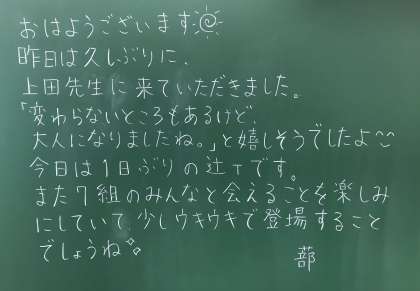 おはようございます
昨日は久しぶりに、
上田先生に来ていただきました。
「変わらないところもあるけど、
大人になりましたね。」と嬉しそうでしたよ〜
今日は1日ぶりの辻Tです。
また7組のみんなと会えることを楽しみ
にしていて、少しウキウキで登場すること
でしょうね